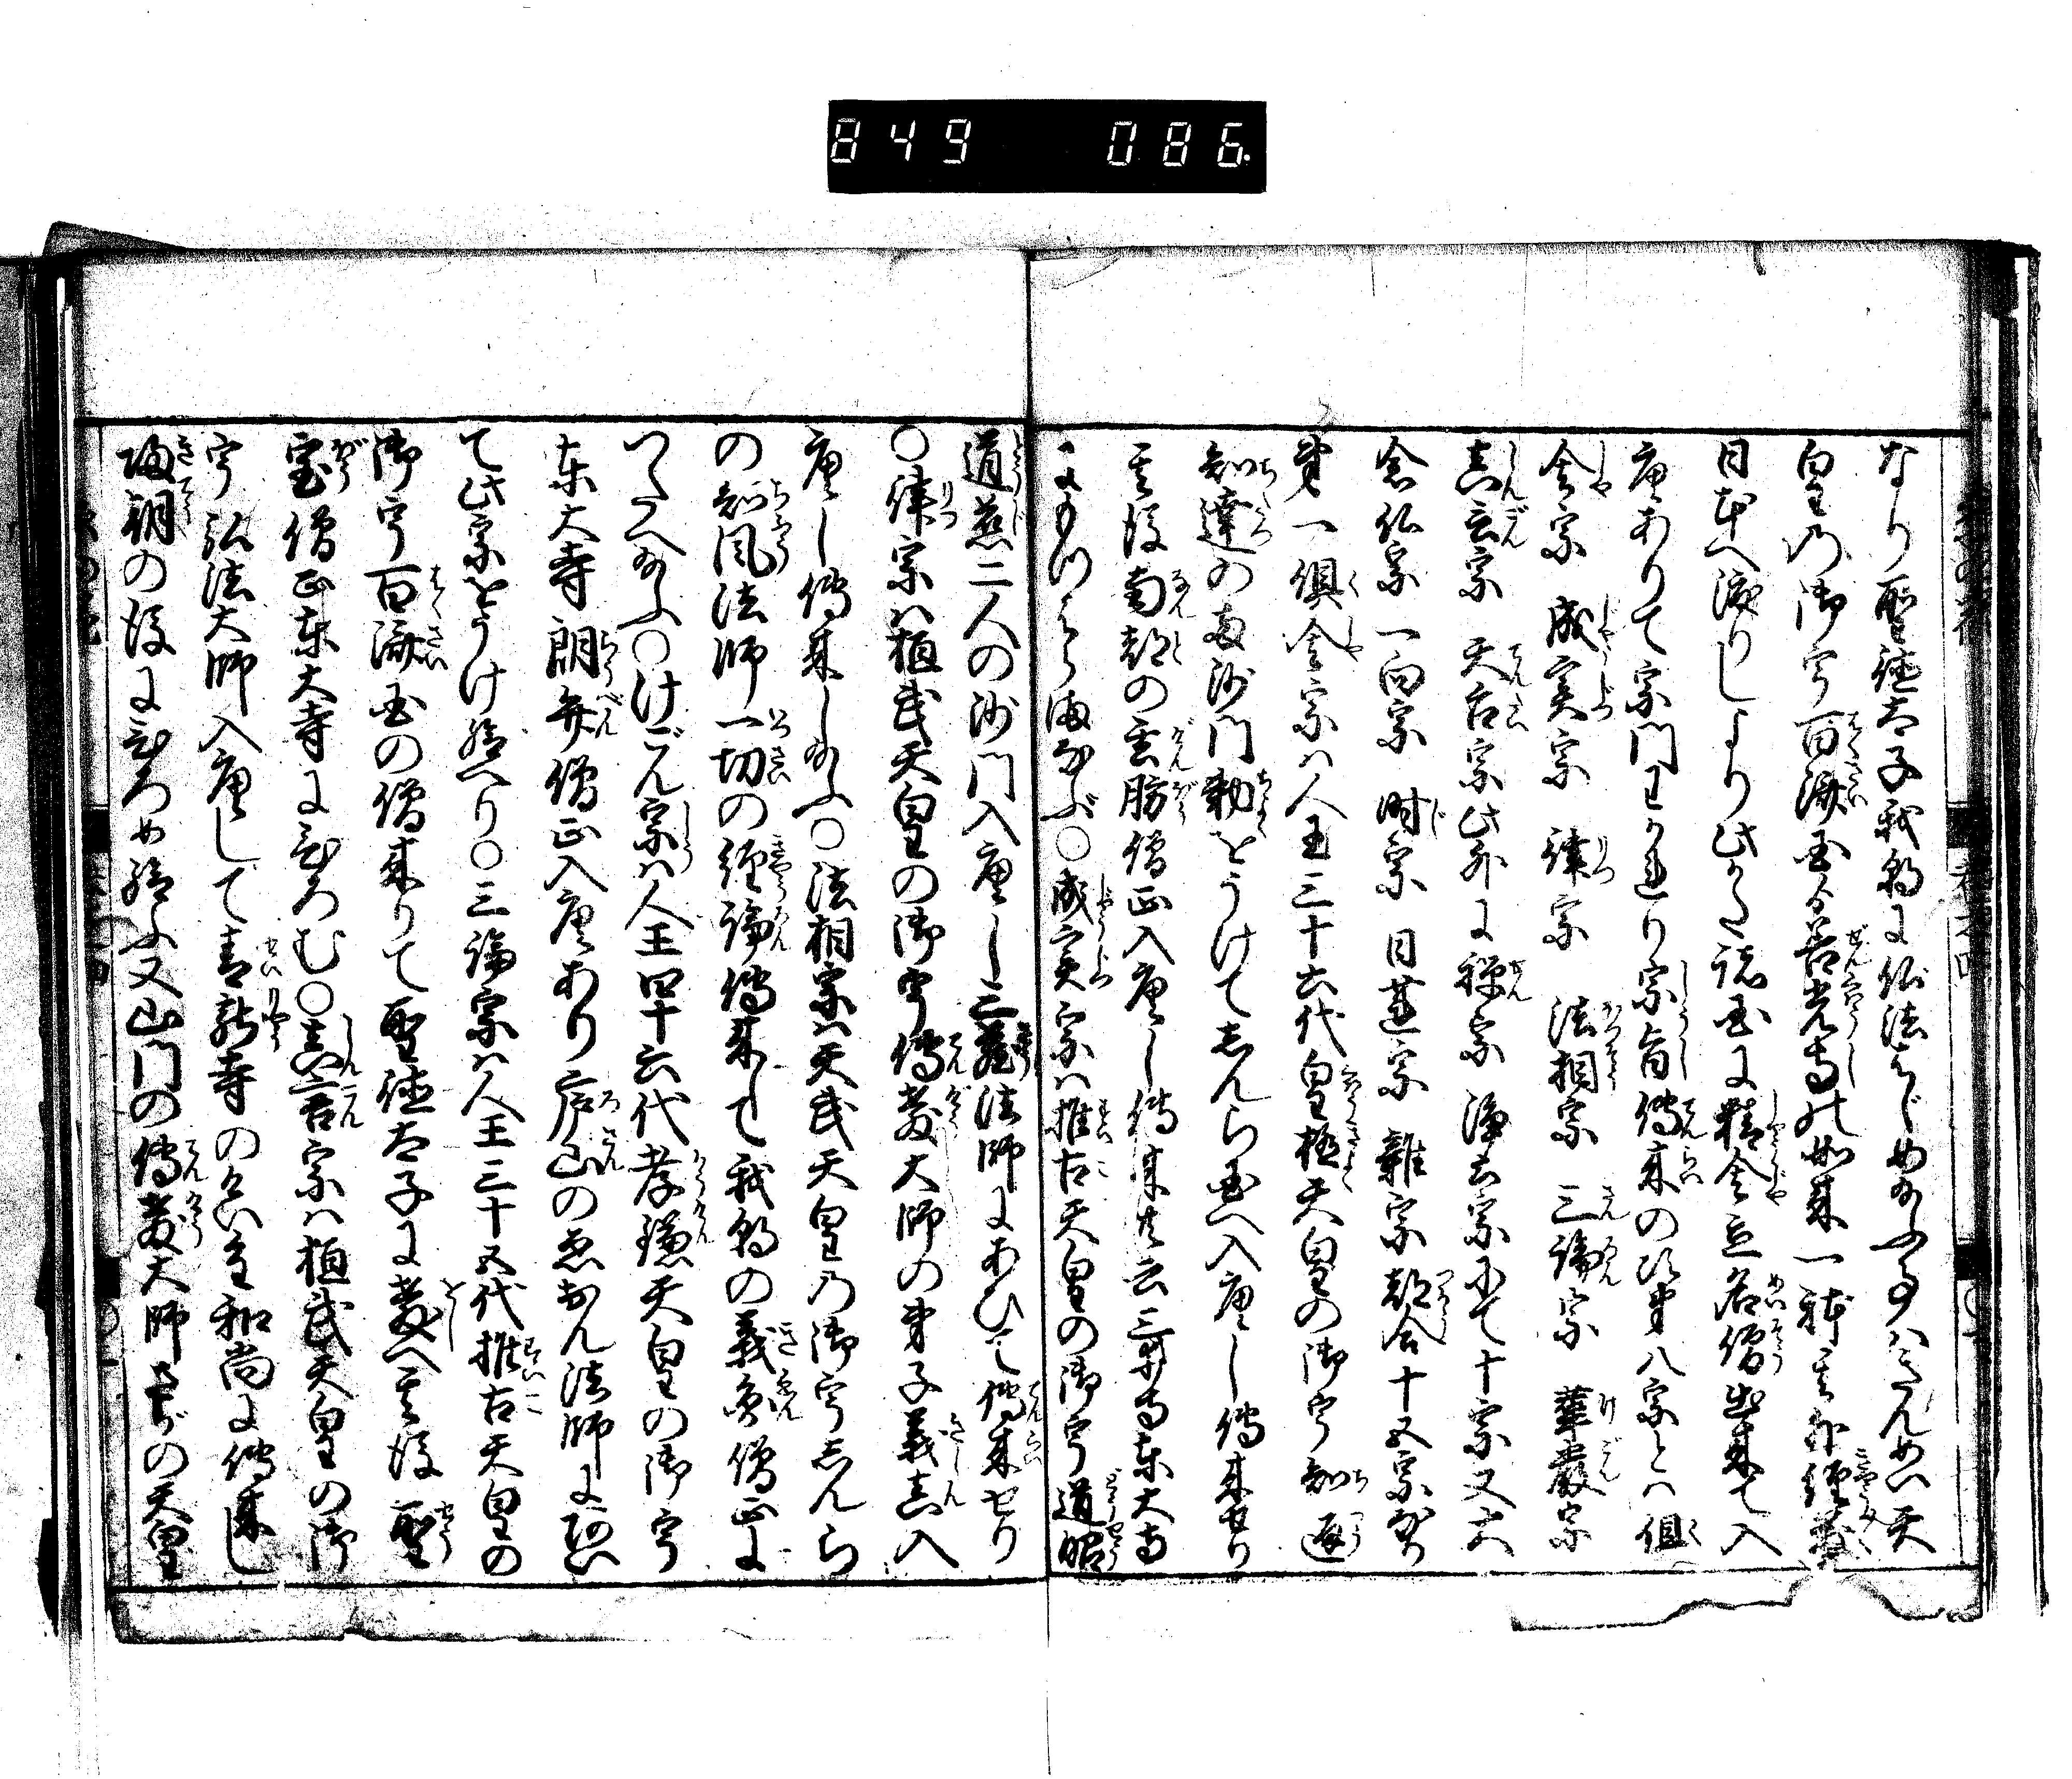 849 086
なり聖徳太子我朝に仏法はじめ給ふ事はきんめい天
皇の御宇百済国より善光寺の如来一躰其外経蔵
日本へ渡りしより此かた諸国に精舎立名僧出来て入
唐ありて宗門わかれり宗旨伝来の次第八宗とは倶
舎宗 成実宗 律宗 法相宗 三論宗 華厳宗
真言宗 天台宗此外に禅宗 浄土宗にて十宗又六
念仏宗 一向宗 時宗 日蓮宗 雑宗都合十五宗
第一倶舎宗は人王三十六代皇極天皇の御宇知通
知達の両沙門勅をうけてしんら国へ入唐し伝来せり
其後南都の玄昉僧正入唐し伝来
〇成実宗は推古天皇の御宇道昭
道慈二人の沙門入唐し三蔵法師にあひて伝来せり
〇律宗は桓武天皇の御宇伝教大師の弟子義真入
唐し伝来し給ふ〇法相宗は天武天皇の御宇しんら
の智鳳法師一切の経論伝来して我朝の義淵僧正に
つたへ給ふ〇けごん宗は人王四十六代孝謙天皇の御宇
東大寺朗弁僧正入唐あり庐山のゑおん法師に
て此宗をうけ給へり〇三論宗は人王三十五代推古天皇の
御宇百済国の僧来りて聖徳太子に教へ其後聖
宝僧正東大寺にひろむ〇真言宗は桓武天皇の御
宇弘法大師入唐して青龍寺のけい和尚に伝来し
帰朝の後にひろめ給ふ又山門の伝教大師さがの天皇